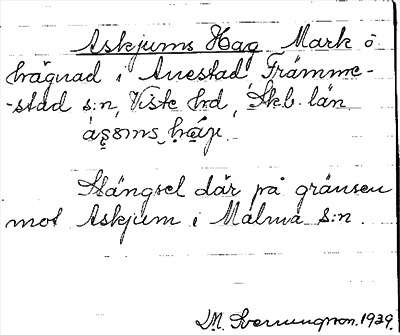 Askjums Hag Mark o.
hägnad i Anestad, Främme-
-stad s:n, Viste hd, Skb. län

Stängsel där på gränsen
mot Askjum i Malma s:n.
M. Sverungson. 1939.